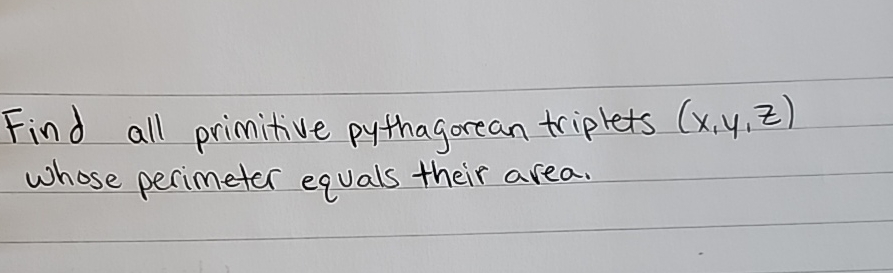 Find all primitive pythagorean triplets (x,y,z)
whose perimeter equals their area.